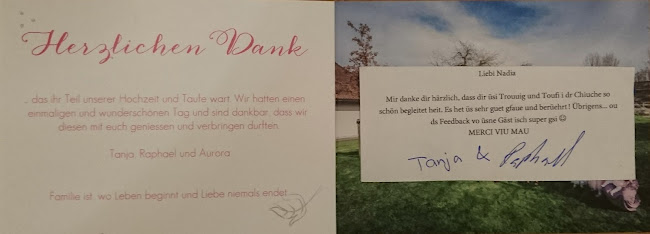 Herzlichen Dank
... dass ihr Teil unserer Hochzeit und Taufe wart. Wir hatten einen
einmaligen und wunderschönen Tag und sind dankbar, dass wir
diesen mit euch geniessen und verbringen durften.
Tanja, Raphael und Aurora
Familie ist, wo Leben beginnt und Liebe niemals endet...
Liebi Nadia
Mir danke dir härzlich, dass dir üsi Trouuig und Toufi i dr Chiuche so
schön begleitet heit. Es het üs sehr guet gfaue und berüehrt! Übrigens... ou
ds Feedback vo üsne Gäst isch super gsi ☺
MERCI VIU MAU
Tanja & Raphael